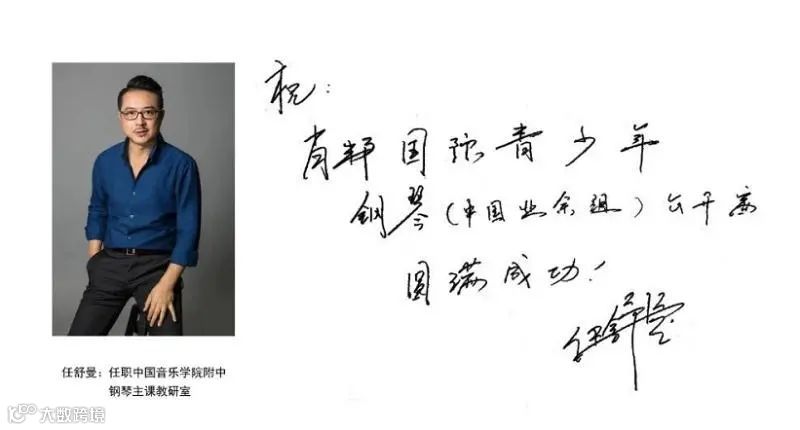 祝：
肖邦国际青少年
钢琴（中国业余组）公开赛
圆满成功！
任舒曼
任舒曼：任职中国音乐学院附中
钢琴主课教研室
大数跨境